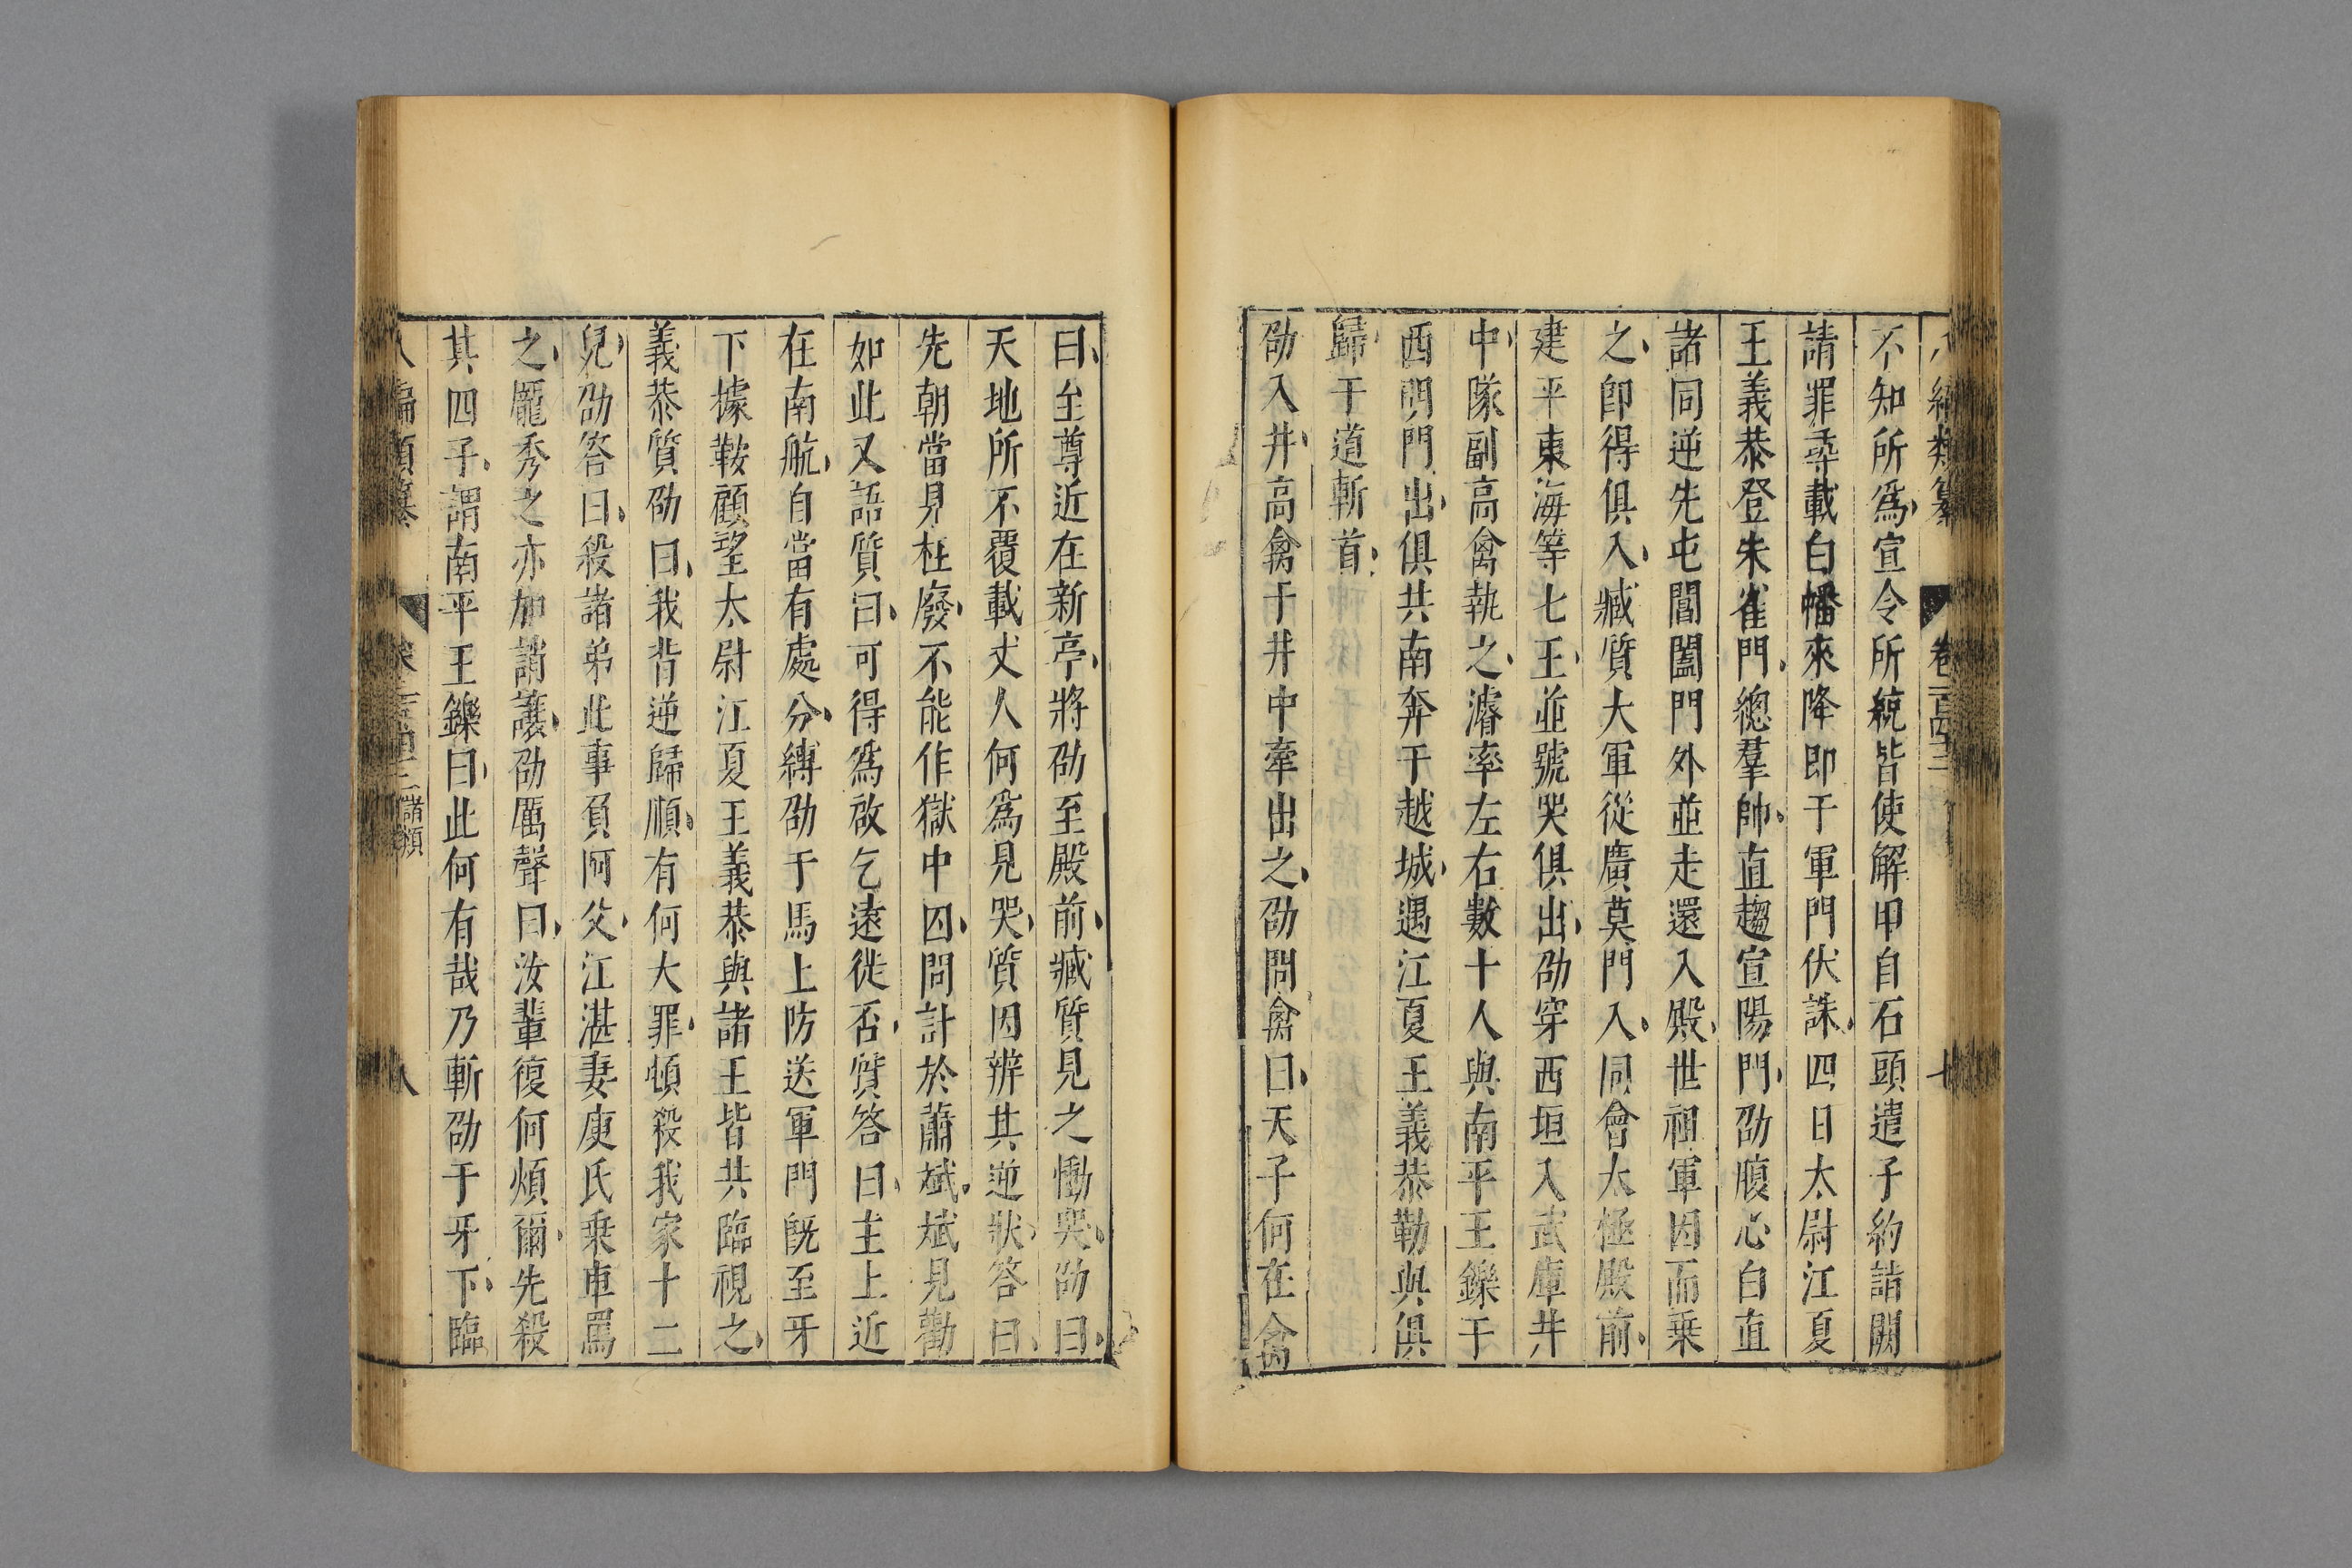 不知所爲宣令所統皆使解甲自石頭遣子約詣闕
請罪尋載白幡來降即于軍門伏誅四日太尉江夏
王義恭登朱雀門總羣帥直趨宣陽門劭腹心白直
諸同逆先屯閶闔門外並走還入殿世祖軍因而乗
之卽得俱入臧質大軍從廣莫門入同會太極殿前
建平東海等七王並號哭俱出劭穿西垣入武庫井
中隊副高禽執之濬率左右數十人與南平王鑠于
西明門出俱共南奔于越城遇江夏王義恭勒與俱
歸于道斬首
劭入井高禽于井中牽出之劭問禽曰天子何在禽
曰至尊近在新亭將劭至殿前臧質見之慟哭劭曰
天地所不覆載丈人何爲見哭質因辨其逆狀答曰
先朝當見枉廢不能作獄中囚問計於蕭斌斌見勸
如此又語質曰可得爲啟乞遠徙否質答曰主上近
在南航自當有處分縛劭于馬上防送軍門旣至牙
下據鞍顧望太尉江夏王義恭與諸王皆共臨視之
義恭質劭曰我背逆歸順有何大罪頓殺我家十二
兒劭答曰殺諸弟此事負阿父江湛妻庾氏乗車罵
之龐秀之亦加誚讓劭厲聲曰汝輩復何煩爾先殺
其四子謂南平王鑠曰此何有哉乃斬劭于牙下臨
八編類纂 諸類 八